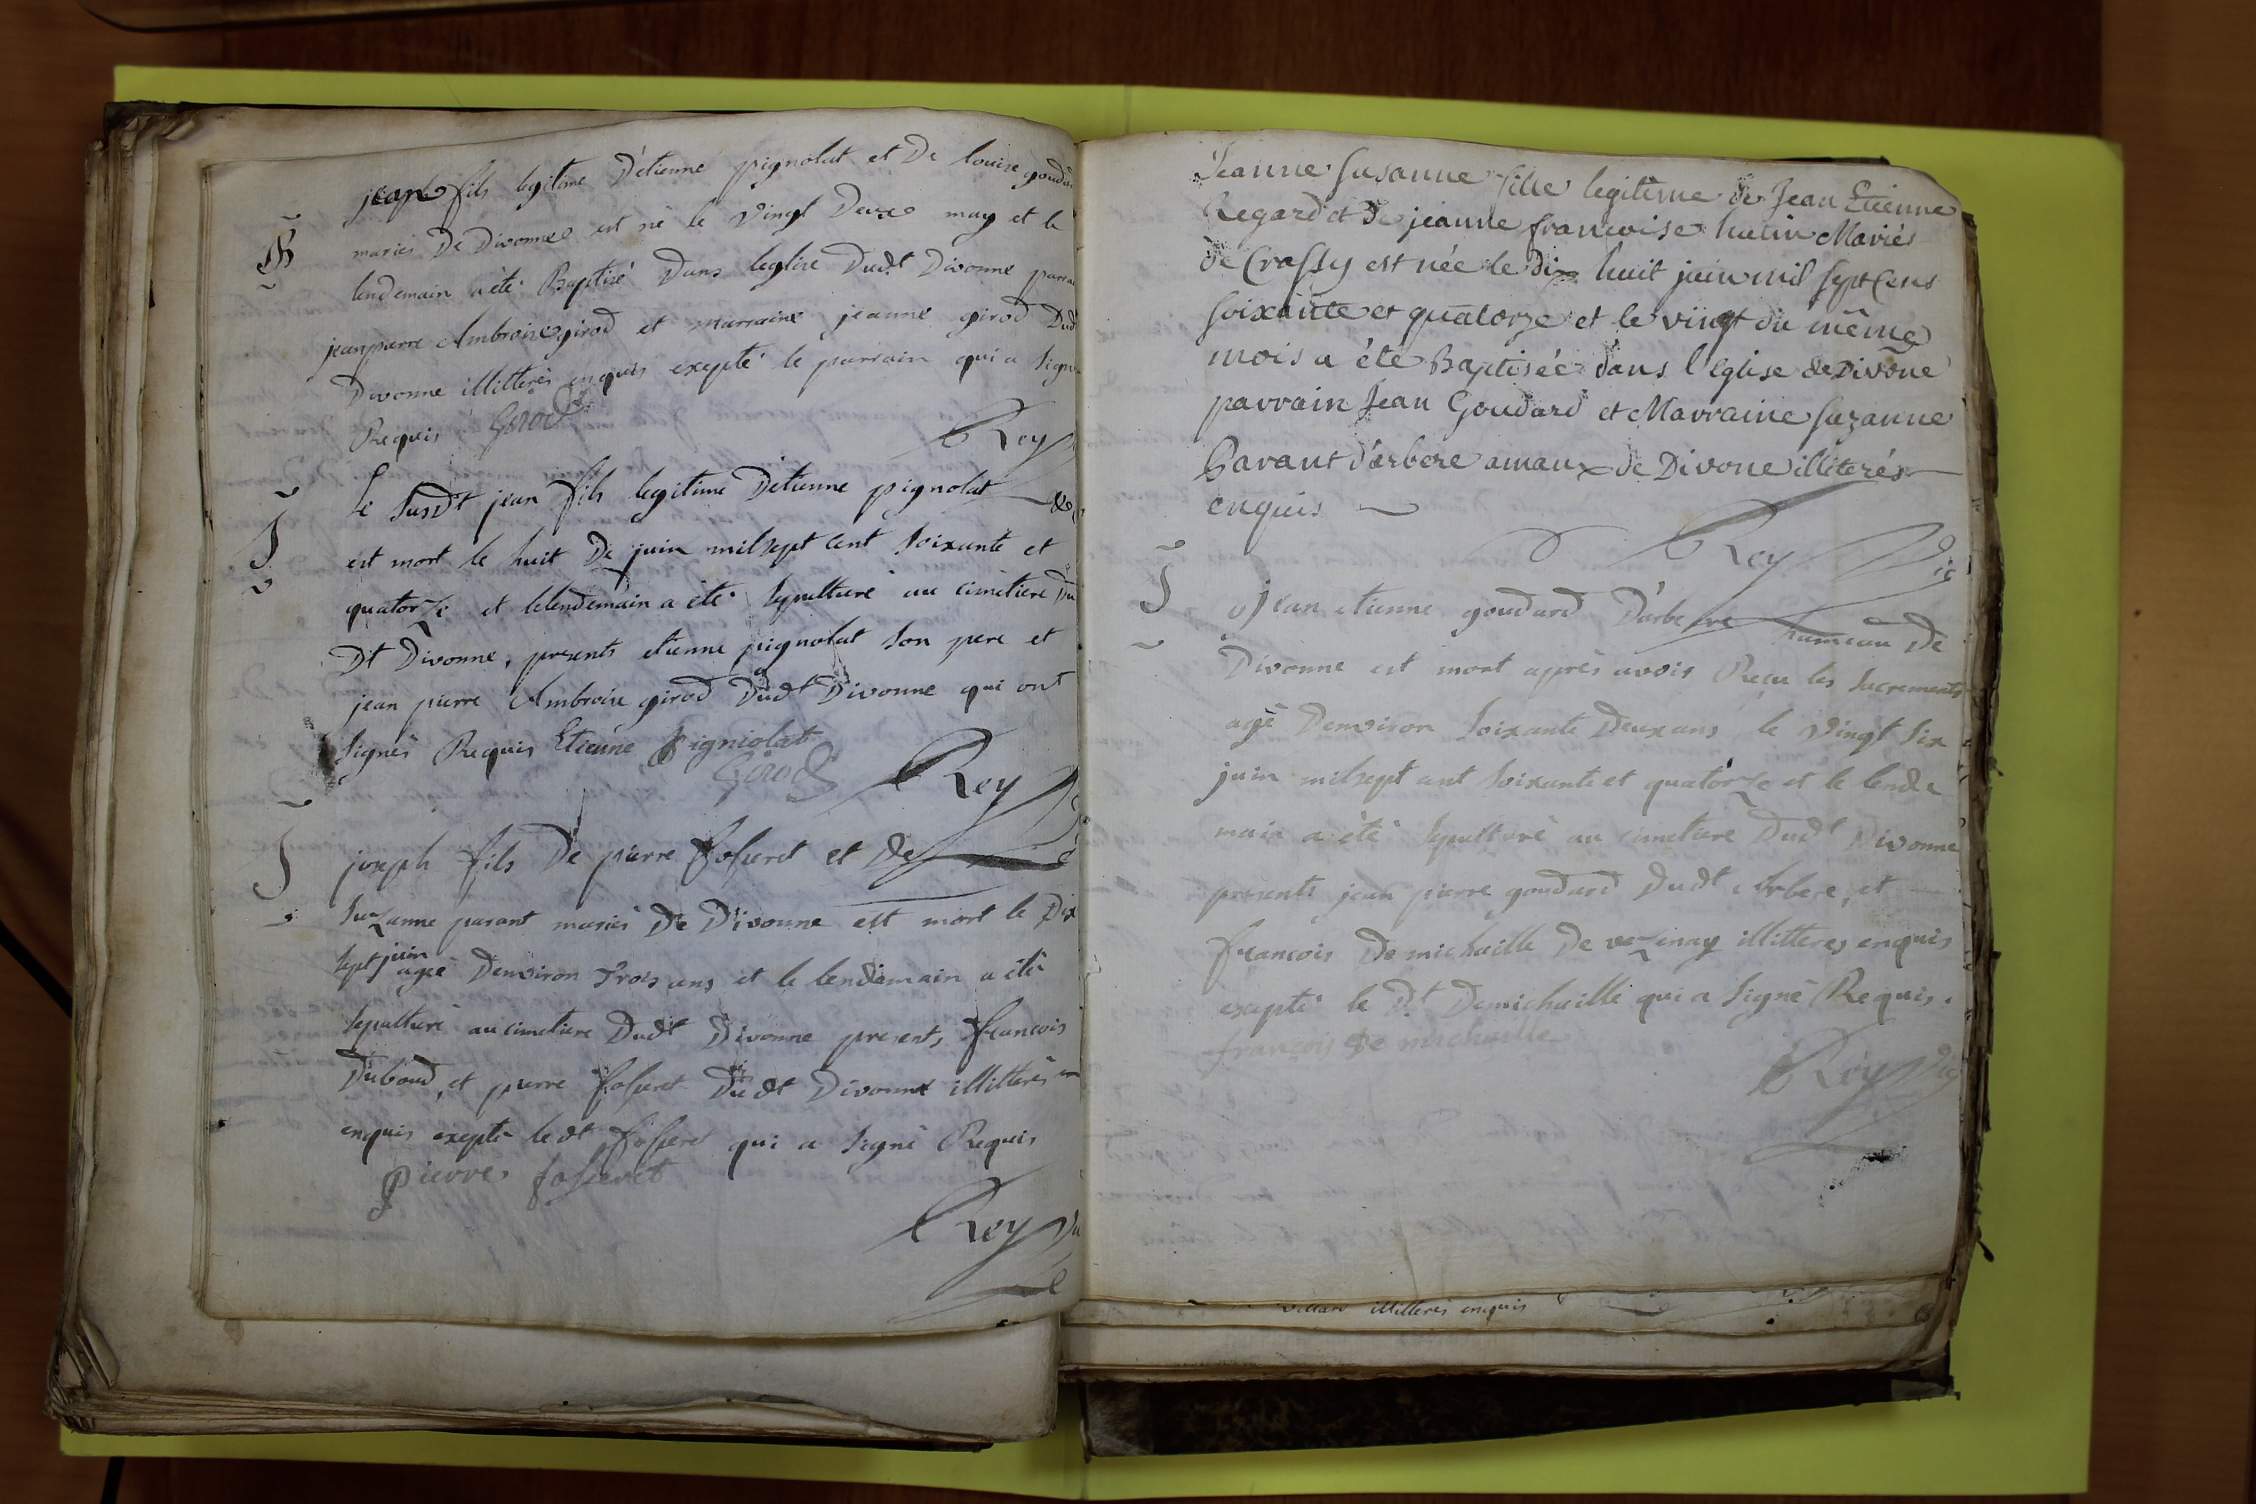 jean fils legitime D'etienne pignolat et De louise
B
mariés De Divonne est né le Vingt Deux may et le
lendemain a été Baptisé Dans leglise Dudt Divonne
jeanpierre Ambroise girod et marraine jeanne girod Dudt
Divonne illitterés enquis exepté le parrain qui a
Requis Girod
Rey
S
le susdt jean fils legitime D'etienne pignolat
est mort le huit De juin milsept cent soixante et
quatorze et lelendemain a été sepulturé au cimetiere Du
Dt Divonne, presents etienne pignolat son pere et
jean pierre Ambroise girod Dudt Divonne qui ont
signés Requis Etienne pigniolat
Girod Rey
S
joseph fils De pierre fosseret et De
suzanne parant mariés De Divonne est mort le Dix
sept juin agée Denviron Trois ans et le lendemain a été
sepulturé au cimetiere Dudt Divonne presents françois
Duboud, et pierre fosseret Dudt Divonne illitterés
enquis exepté ledt fosseret qui a signé Requis
pierre fosseret
Rey
Jeanne susanne fille legitime de Jean Etienne
Regard et De jeanne francoise hutin Mariés
de Crassy est née le dix huit juin mil sept Cens
soixante et quatorze et le vingt du même
mois a été Baptisée dans l'Eglise de Divone
parrain Jean Goudard et Marraine suzanne
Parant d'erbere amaux de Divone illiterés
enquis
Rey Vic
S
Jean etienne goudard D'arbere hameau De
Divonne est mort aprés avoir Reçu les sacrements
agé Denviron soixante Deux ans le Vingt six
juin milsept cent soixante et quatorze et le lende
main a été sepulturé au cimetiere Dudt Divonne
presents jean pierre goudard Dudt Arbere, et
françois De michaille De vezenay illitteres enquis
exepté le Dt Demichaille qui a signé Requis.
françois De michaille
Rey Vic
villard illitterés enquis